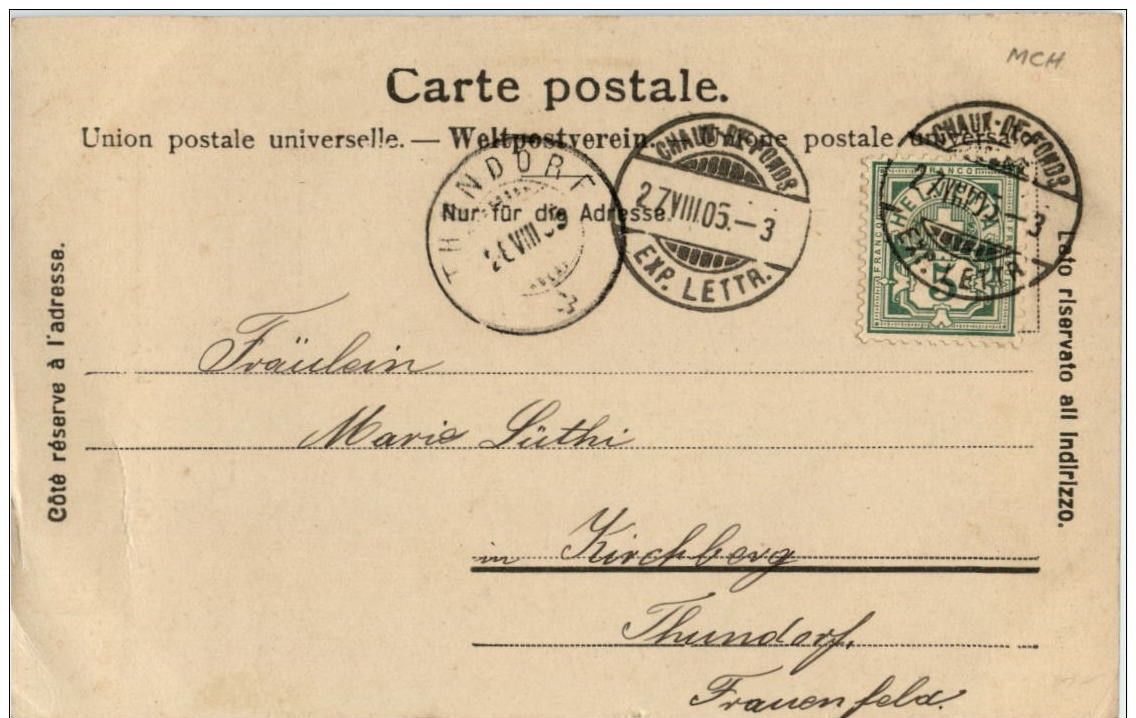 MCH
Carte postale.
Union postale universelle. — Weltpostverein. — Unione postale universale
Nur für die Adresse.
THUNDORF
28 VIII 05
CHAUX-DE-FONDS
27.VIII.05.–3
EXP. LETTR.
CHAUX-DE-FONDS
27.VIII.05.–3
EXP. LETTR.
FRANCO
HELVETIA
FRANCO
FRANCO
5
Côté réserve à l'adresse.
Lato riservato all Indirizzo.
Fräulein
Marie Lüthi
in Kirchberg
Thundorf.
Frauenfeld.